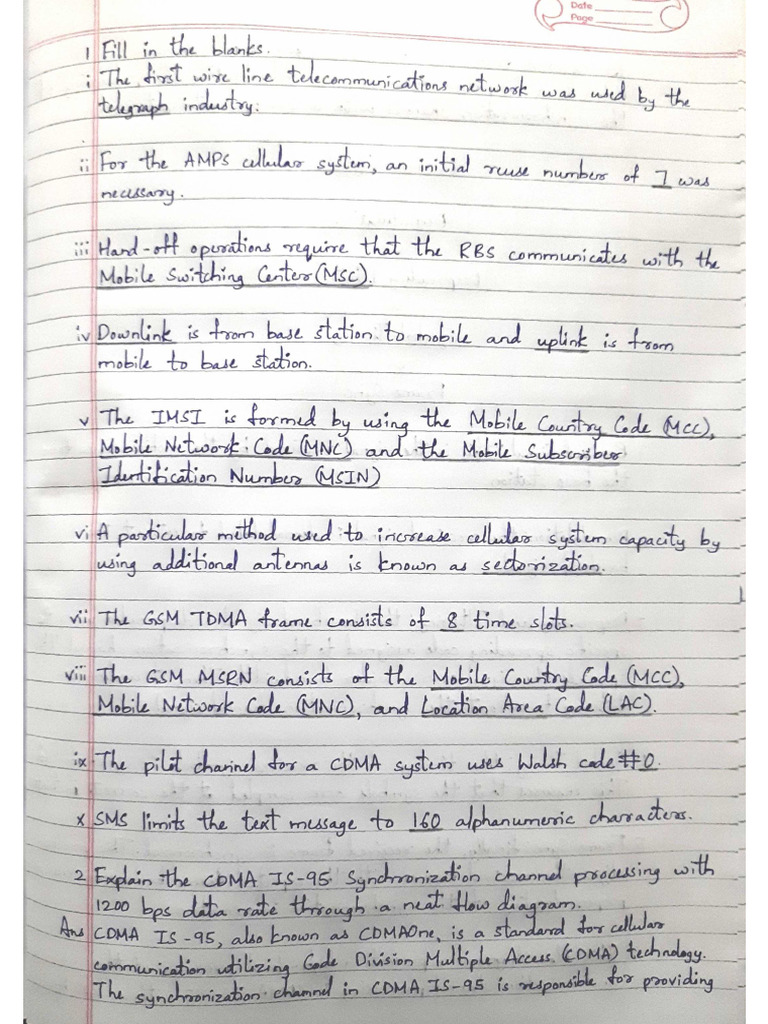 Date
Page
1 Fill in the blanks.
i The first wire line telecommunications network was used by the
telegraph industry.
ii For the AMPS cellular system, an initial reuse number of 7 was
necessary.
iii Hand-off operations require that the RBS communicates with the
Mobile Switching Center (MSC).
iv Downlink is from base station to mobile and uplink is from
mobile to base station.
v The IMSI is formed by using the Mobile Country Code (MCC),
Mobile Network Code (MNC) and the Mobile Subscriber
Identification Number (MSIN)
vi A particular method used to increase cellular system capacity by
using additional antennas is known as sectorization.
vii The GSM TDMA frame consists of 8 time slots.
viii The GSM MSRN consists of the Mobile Country Code (MCC),
Mobile Network Code (MNC), and Location Area Code (LAC).
ix The pilot channel for a CDMA system uses Walsh code #0.
x SMS limits the text message to 160 alphanumeric characters.
2 Explain the CDMA IS-95 Synchronization channel processing with
1200 bps data rate through a neat flow diagram.
Ans CDMA IS-95, also known as CDMAOne, is a standard for cellular
communication utilizing Code Division Multiple Access (CDMA) technology.
The synchronization channel in CDMA IS-95 is responsible for providing